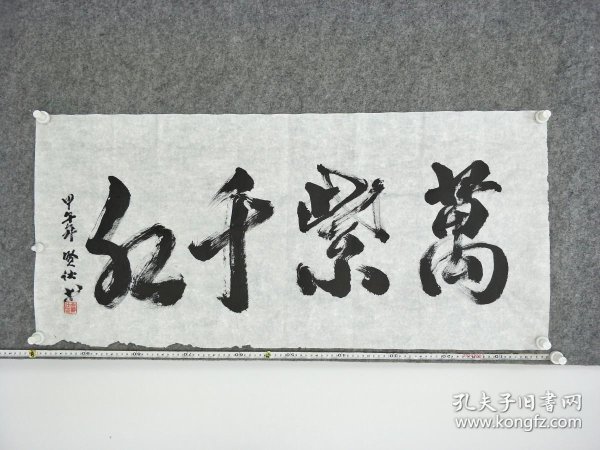 萬紫千红
甲午年 賢仕书
孔夫子旧书网
www.kongfz.com